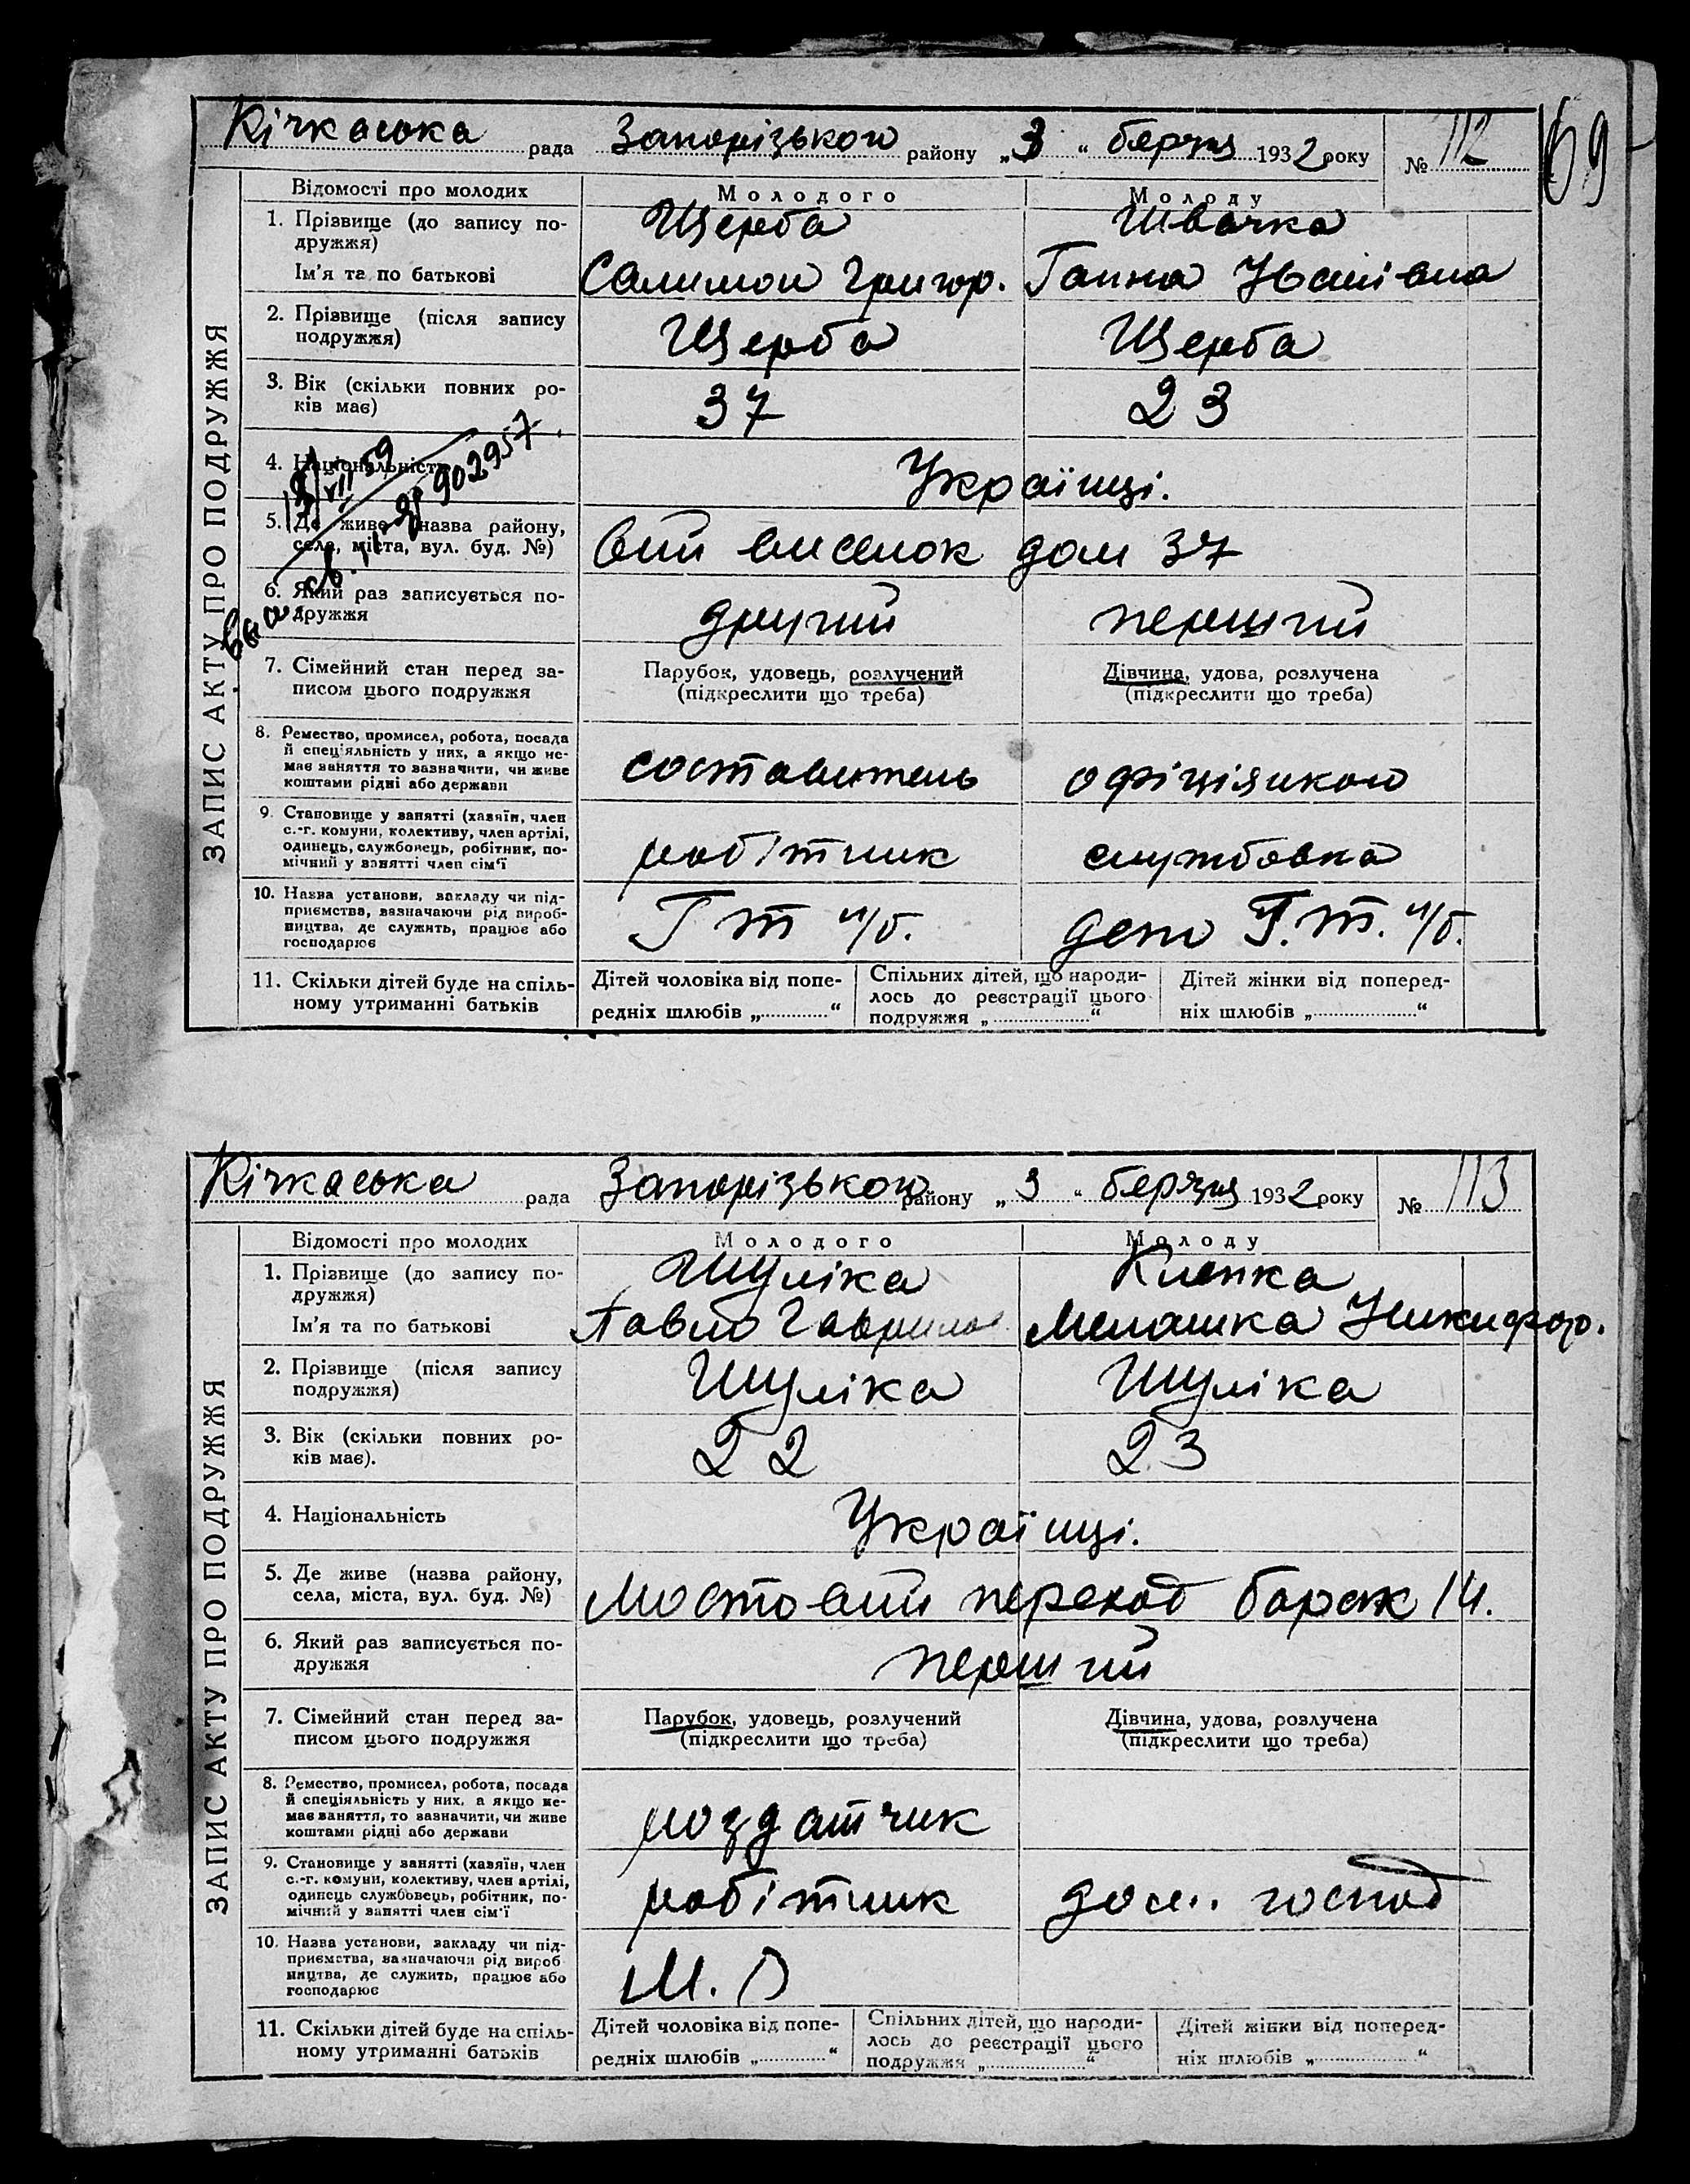 69
Кічкаська рада Запорізького району „3“ березня 1932 року № 112
ЗАПИС АКТУ ПРО ПОДРУЖЖЯ
Відомості про молодих Молодого Молоду
1. Прізвище (до запису по-
дружжя) Щерба Швачка
Ім'я та по батькові Салимон Григор. Ганна Іванівна
2. Прізвище (після запису
подружжя) Щерба Щерба
3. Вік (скільки повних ро-
ків має) 37 23
4. Національність Українці.
5. Де живе (назва району,
села, міста, вул. буд. №) 6ий виселок дом 37
6. Який раз записується по-
дружжя другий перший
7. Сімейний стан перед за-
писом цього подружжя
Парубок, удовець, розлучений
(підкреслити що треба)
Дівчина, удова, розлучена
(підкреслити що треба)
8. Ремество, промисел, робота, посада
й спеціяльність у них, а якщо не-
має заняття то зазначити, чи живе
коштами рідні або держави
составитель офіціянкою
9. Становище у занятті (хазяїн, член
с.-г. комуни, колективу, член артілі,
одинець, службовець, робітник, по-
мічний у занятті член сім'ї
робітник службовка
10. Назва установи, закладу чи під-
приємства, зазначаючи рід вироб-
ництва, де служить, працює або
господарює
Г т ч/б. депо Г.т. ч/б.
11. Скільки дітей буде на спіль-
ному утриманні батьків
Дітей чоловіка від попе-
редніх шлюбів „ “
Спільних дітей, що народи-
лось до реєстрації цього
подружжя „ “
Дітей жінки від поперед-
ніх шлюбів „ “
VII 59
902957
Кічкаська рада Запорізького району „3“ березня 1932 року № 113
ЗАПИС АКТУ ПРО ПОДРУЖЖЯ
Відомості про молодих Молодого Молоду
1. Прізвище (до запису по-
дружжя) Шуліка Клепка
Ім'я та по батькові Павло Гаврилов Мелашка Никифор.
2. Прізвище (після запису
подружжя) Шуліка Шуліка
3. Вік (скільки повних ро-
ків має). 22 23
4. Національність Українці.
5. Де живе (назва району,
села, міста, вул. буд. №) Мостовий переход барак 14.
6. Який раз записується по-
дружжя перший
7. Сімейний стан перед за-
писом цього подружжя
Парубок, удовець, розлучений
(підкреслити що треба)
Дівчина, удова, розлучена
(підкреслити що треба)
8. Ремество, промисел, робота, посада
й спеціяльність у них, а якщо не-
має заняття, то зазначити, чи живе
коштами рідні або держави
роздатчик
9. Становище у занятті (хазяїн, член
с.-г. комуни, колективу, член артілі,
одинець службовець, робітник, по-
мічний у занятті член сім'ї
робітник дом. господ
10. Назва установи, закладу чи під-
приємства, зазначаючи рід вироб
ництва, де служить, працює або
господарює
М. П
11. Скільки дітей буде на спіль-
ному утриманні батьків
Дітей чоловіка від попе-
редніх шлюбів „ “
Спільних дітей, що народи-
лось до реєстрації цього
подружжя „ “
Дітей жінки від поперед-
ніх шлюбів „ “